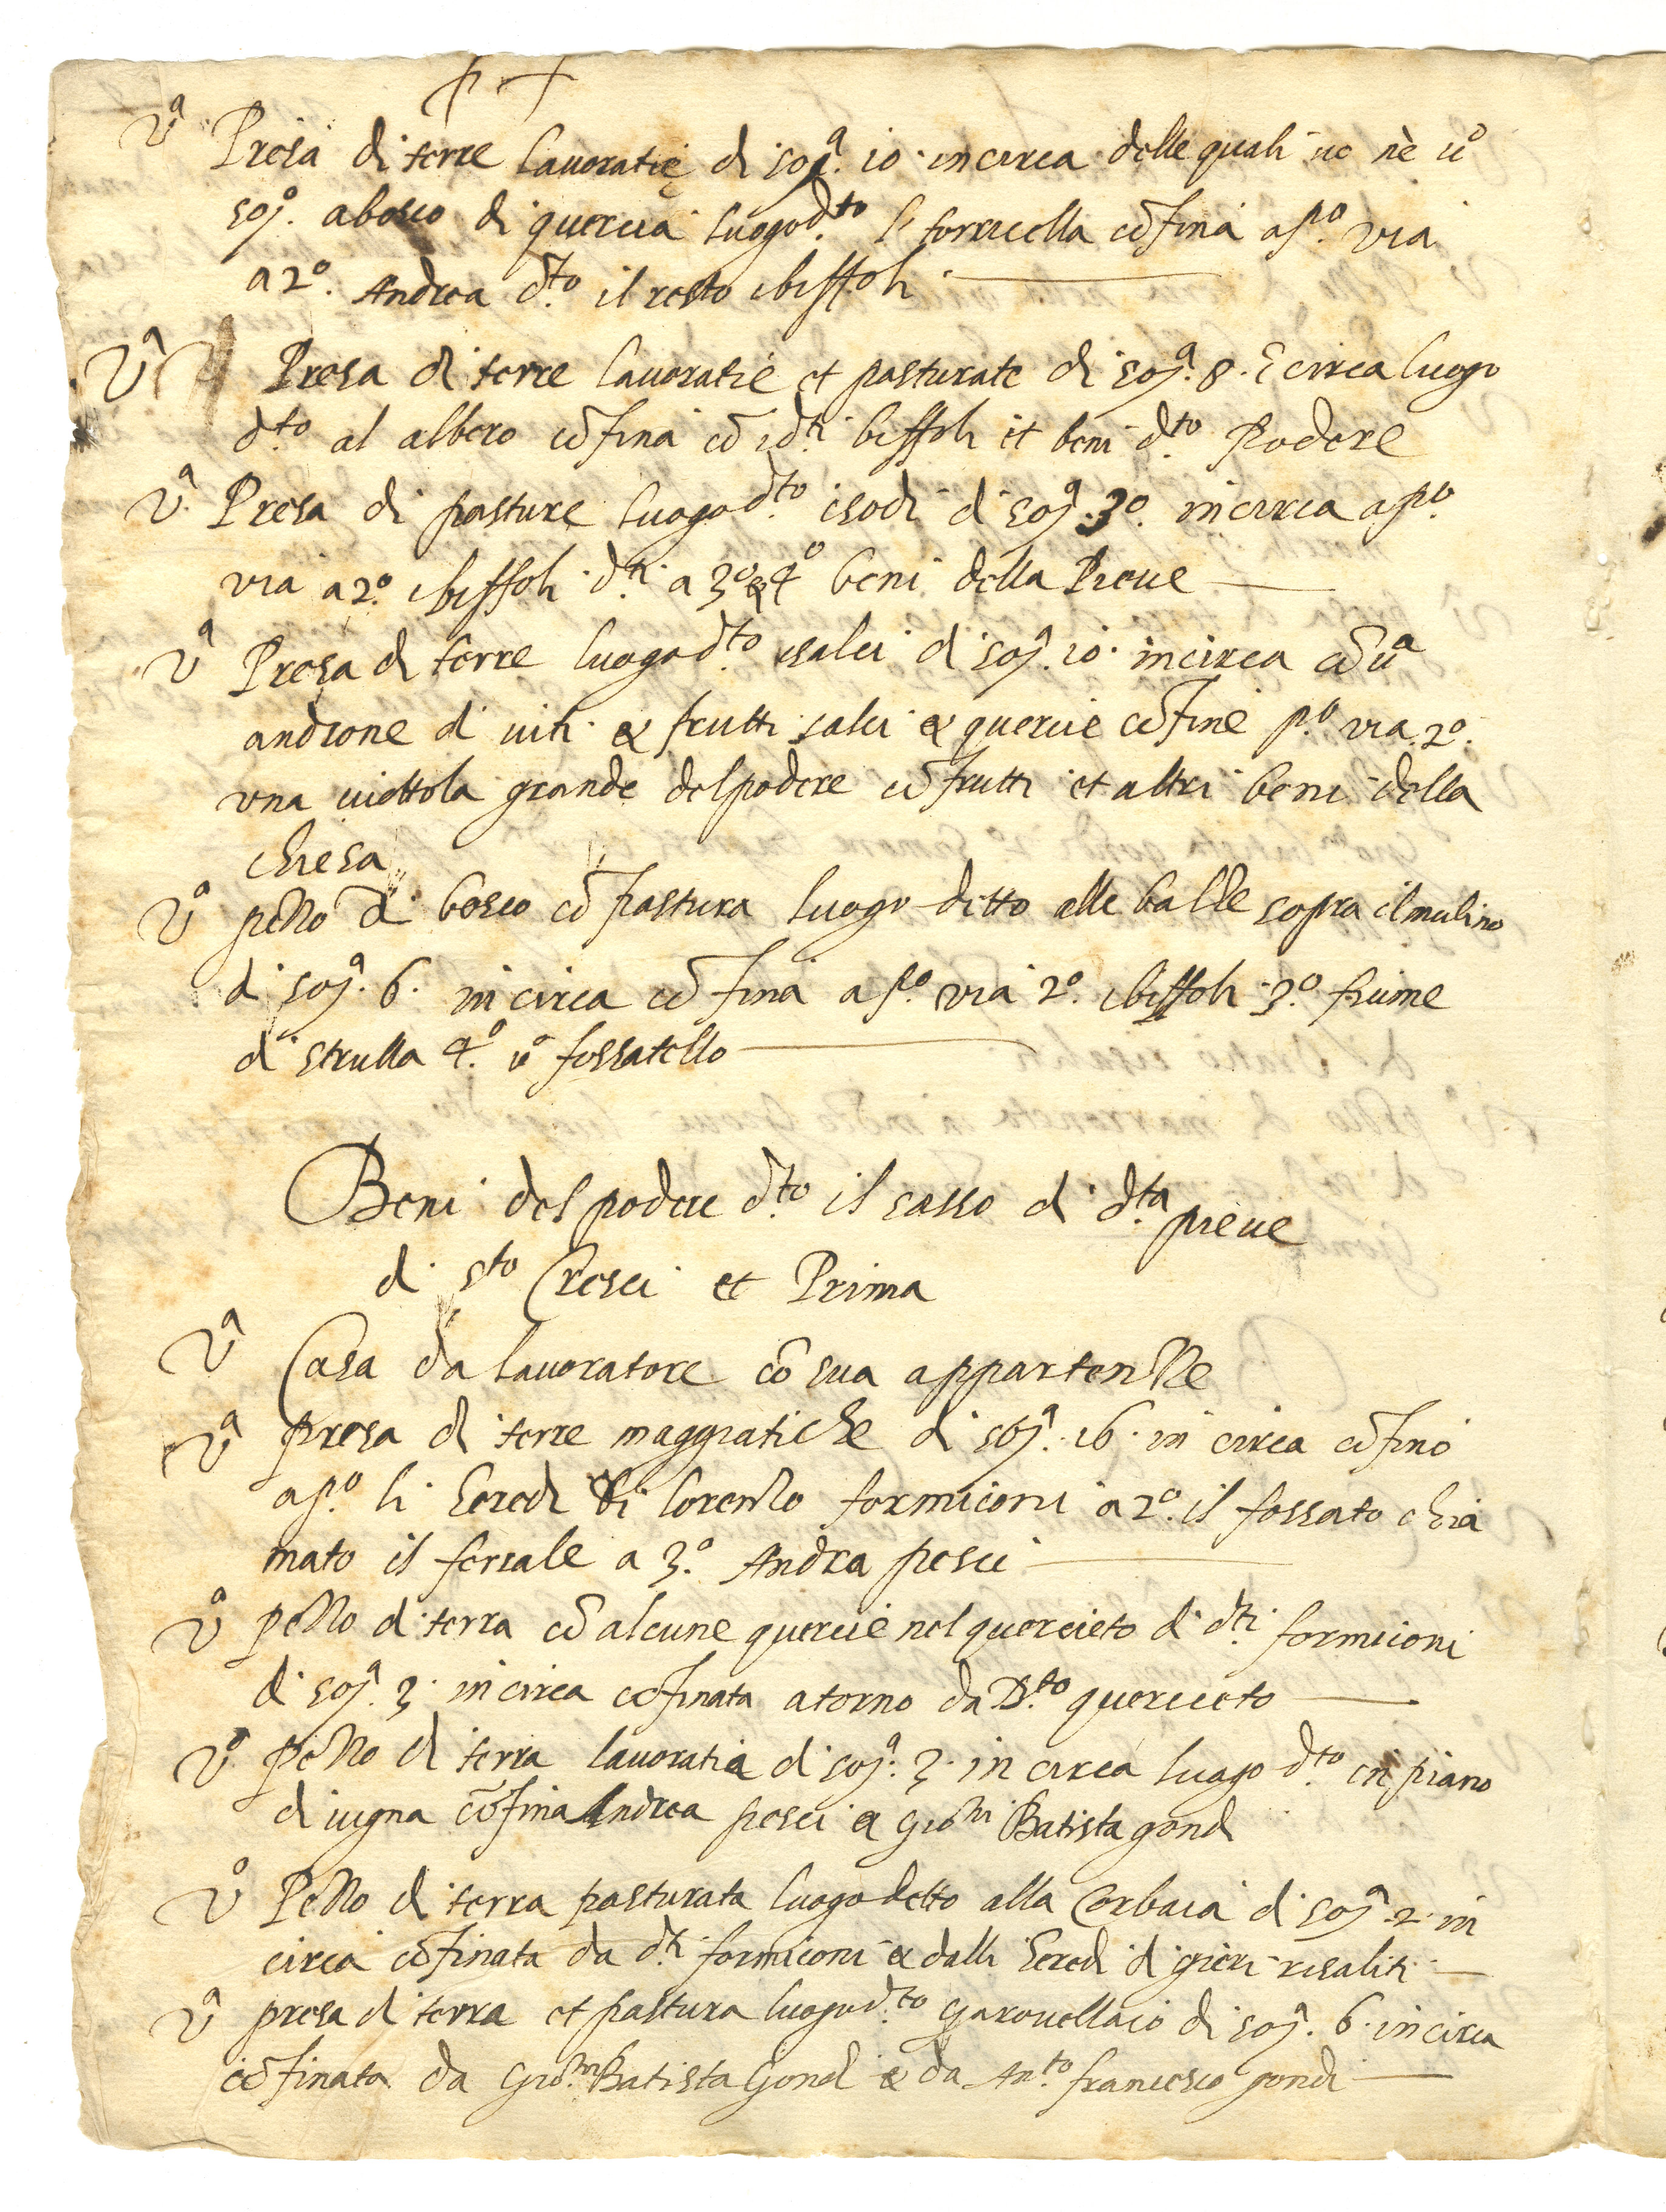 Vᵃ Presa di terre lauoratie di soᵃ. 10 incirca delle quali ue nè uº
soᵃ. abosco di quercia luogo d.ᵗᵒ torricella cōfina a pº. via
a 2º. Andrea d.ᵗᵒ il resto ibiffoli
Vᵃ Presa di terre lauoratie et pasturate di soᵃ. 8. circa luogo
d.ᵗᵒ al albero cōfina cō i d.ᵗⁱ biffoli et beni d.ᵗᵒ Podere
Vᵃ. Presa di pasture luogo d.ᵗᵒ isodi di soᵃ. 30. incirca a pº.
via a 2º. ibiffoli d.ᵗⁱ a 3º & 4º beni della Pieue
Vᵃ Presa di terre luogo d.ᵗᵒ isalci di soᵃ. 10. incirca cō uᵃ
androne di uiti & frutti salci & quercie cōfine pº. via. 2º.
vna uiottola grande del podere cō frutti et altri beni della
chiesa
Vº pezzo di bosco cō pastura luogo detto alle balze sopra il mulino
di soᵃ. 6. in circa cō fina a pº. via 2º. ibiffoli 3.º fiume
di strulla 4.º uº fossatello
Beni del podere d.ᵗᵒ il sasso di d.ᵗᵃ pieue
di Sᵗᵒ Cresci et Prima
Vᵃ Casa da lauoratore cō sua appartenzze
Vᵃ presa di terre maggiatiche di soᵃ. 16. in circa cōfino
a pº. li heredi di lorenzo formiconi a 2º. il fossato chia
mato il fersale a 3.º Andrea pesci
Vº pezzo di terra cō alcune quercie nel querceto di d.ᵗⁱ formiconi
di soᵃ. 3. incirca cōfinata atorno da D.ᵗᵒ querceto
Vº. pezzo di terra lauoratia di soᵃ. 3. in circa luogo d.ᵗᵒ in piano
di iugna cōfina Andrea pesci & Gioⁿⁱ Batista gondi
Vº Pezzo di terra pasturata luogo detto alla Corbaia di soᵃ. 2. in
circa cōfinata da d.ᵗⁱ formiconi & dalli heredi di gieri risaliti
Vᵃ presa di terra et pastura luogo d.ᵗᵒ garouellaio di soᵃ. 6. in circa
cōfinata da Gio.ⁿⁱ Batista Gondi & da An.ᵗᵒ francesco gondi